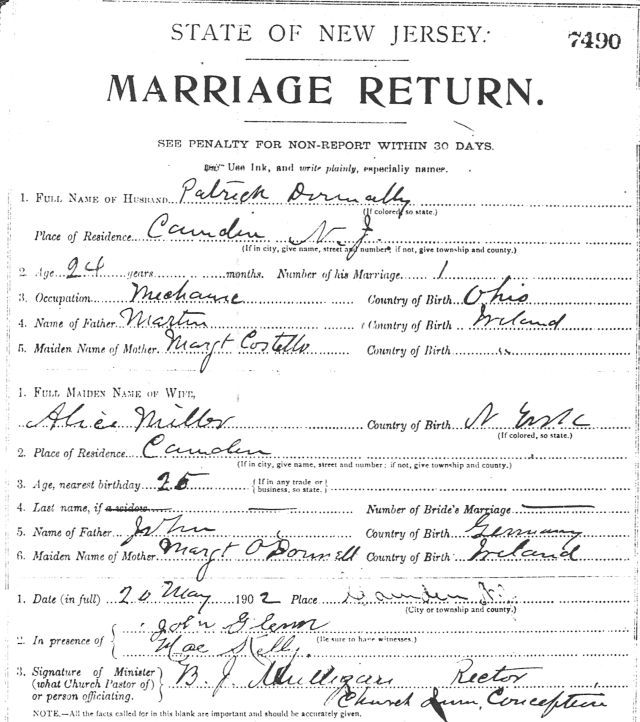 STATE OF NEW JERSEY.
7490
MARRIAGE RETURN.
SEE PENALTY FOR NON-REPORT WITHIN 30 DAYS.
Use Ink, and write plainly, especially names.
1. FULL NAME OF HUSBAND Patrick Donnally
(If colored, so state.)
Place of Residence Camden N. J.
(If in city, give name, street and number; if not, give township and county.)
2. Age 24 years months. Number of his Marriage 1
3. Occupation Mechanic Country of Birth Ohio
4. Name of Father Martin Country of Birth Ireland
5. Maiden Name of Mother Margt Costello Country of Birth "
1. FULL MAIDEN NAME OF WIFE,
Alice Miller Country of Birth N York
(If colored, so state.)
2. Place of Residence Camden
(If in city, give name, street and number; if not, give township and county.)
3. Age, nearest birthday 25 {If in any trade or business, so state.}
4. Last name, if a widow Number of Bride's Marriage
5. Name of Father John Country of Birth Germany
6. Maiden Name of Mother Margt O'Donnell Country of Birth Ireland
1. Date (in full) 20 May 1902 Place Camden N.J.
(City or township and county.)
2. In presence of { John Glenn
(Be sure to have witnesses.)
Mae Skelly.
3. Signature of Minister (what Church Pastor of) or person officiating. } B. J. Mulligan Rector
Church Imm. Conception
NOTE.—All the facts called for in this blank are important and should be accurately given.